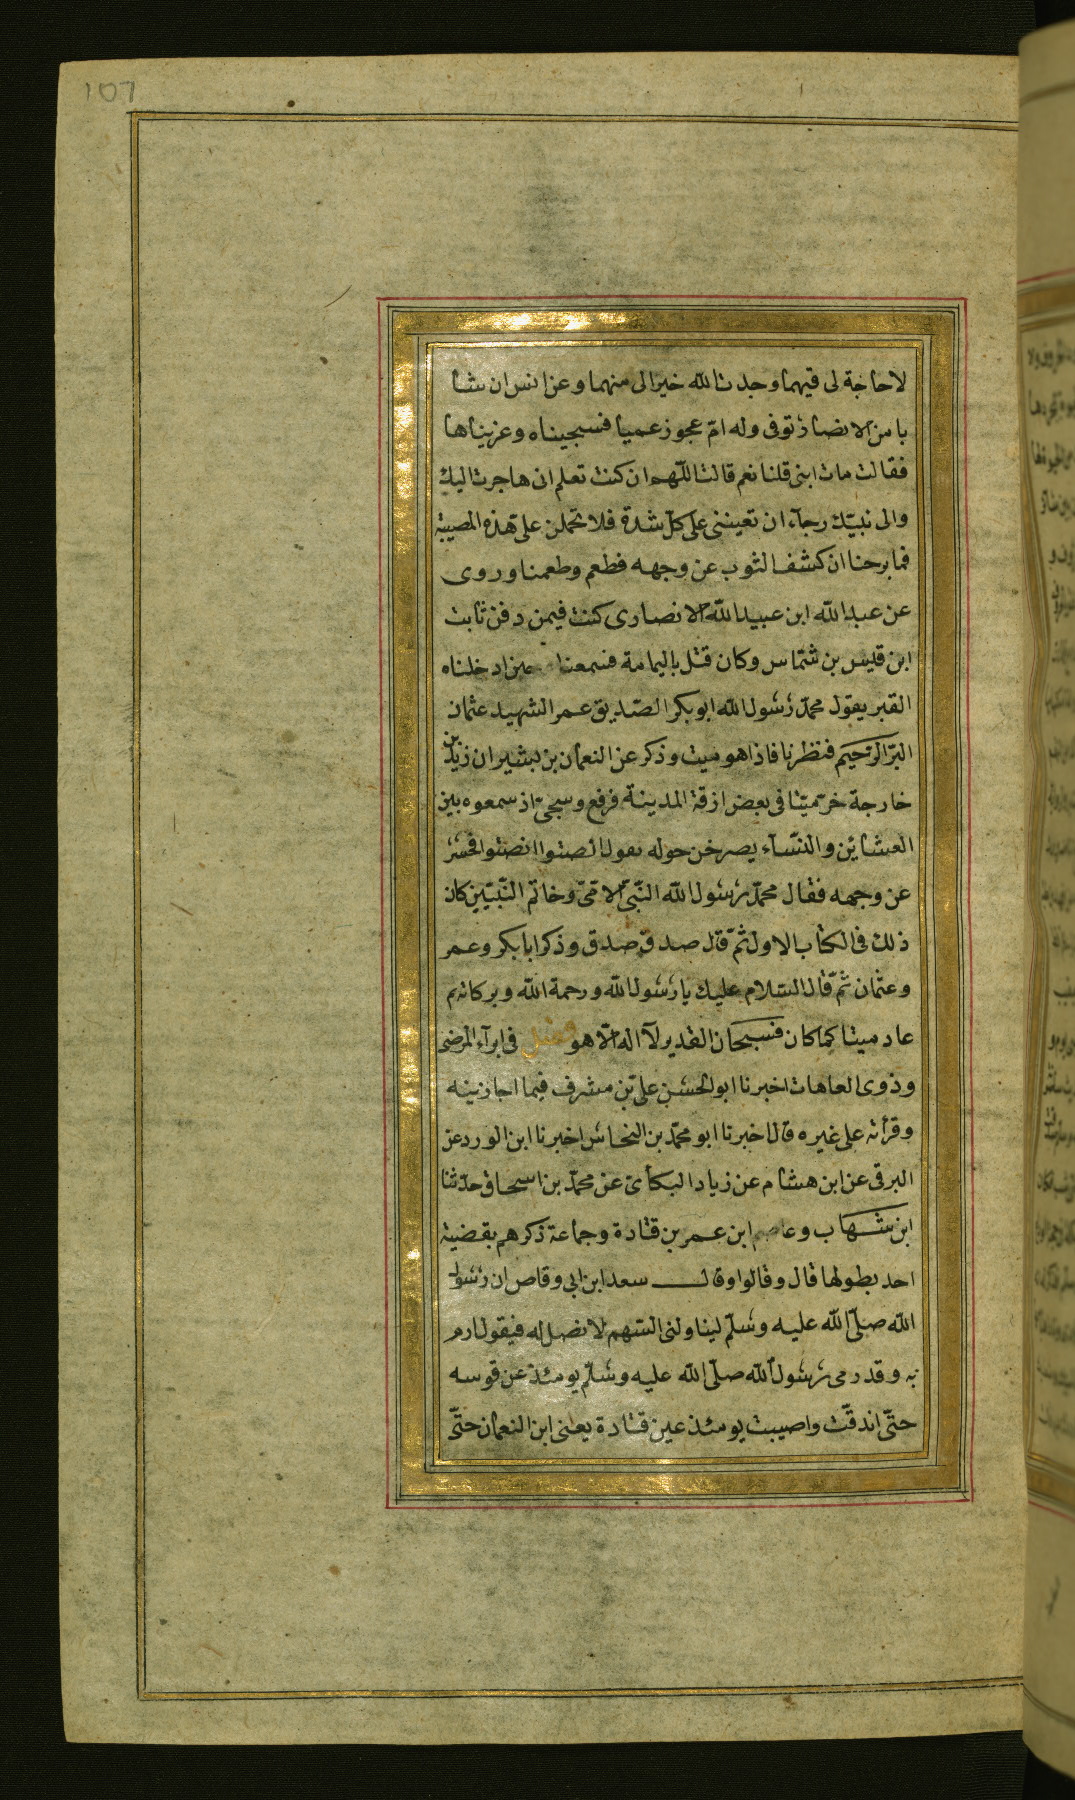 107
لا حاجة لى فيهما وجدت الله خيرا لى منهما وعن انس ان شا
با من الانصار توفى وله امّ عجوز عميا فسجيناه وعزيناها
فقالت مات ابنى قلنا نعم قالت اللّهم ان كنت تعلم ان هاجرت اليك
والى نبيّك رجآء ان تعيننى على كل شدة فلا تحملن على هذه المصيبة
فما برحنا ان كشف الثوب عن وجهه فطعم وطعمنا وروى
عن عبد الله ابن عبيد الله الانصارى كنت فيمن دفن ثابت
ابن قيس بن شمّاس وكان قتل باليمامة فسمعناه حين ادخلناه
القبر يقول محمّد رسول الله ابو بكر الصّديق عمر الشهيد عثمان
البرّ الرّحيم فنظرنا فاذا هو ميت وذكر عن النعمان بن بشير ان زيد بن
خارجة خرّ ميّتا فى بعض ازقة المدينة فرفع وسجىّ اذ سمعوه بين
العشائين والنّسآء يصرخن حوله يقول انصتوا انصتوا فحسر
عن وجهه فقال محمّد رسول الله النّبىّ الامّىّ وخاتم النّبيّين كان
ذلك فى الكتاب الاول ثمّ قال صدق صدق وذكر ابا بكر وعمر
وعثمان ثمّ قال السّلام عليك يا رسول الله ورحمة الله وبركاته ثم
عاد ميتا كما كان فسبحان القدير لآ اله الّا هو فصل فى ابرآء المرضى
وذوى العاهات اخبرنا ابو الحسن علىّ بن مشرف فيما اجازنيه
وقرأته على غيره قال اخبرنا ابو محمّد بن النحاس اخبرنا ابن الورد عن
البرقى عن ابن هشام عن زياد البكأى عن محمّد بن اسحاق حدّثنا
ابن شهاب وعاصم ابن عمر بن قتادة وجماعة ذكرهم بقضية
احد بطولها قال وقالوا وقال سعد ابن ابى وقاص ان رسول
الله صلّى الله عليه وسلّم ليناولنى السّهم لا نصل له فيقول ارم
به وقد رمى رسول الله صلّى الله عليه وسلّم يومئذ عن قوسه
حتّى اندقّت واصيبت يومئذ عين قتادة يعنى ابن النعمان حتّى